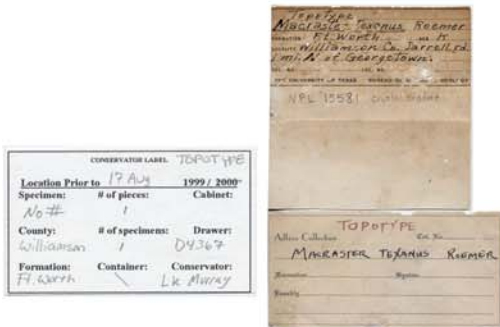 CONSERVATOR LABEL TOPOTYPE
Location Prior to 17 Aug 1999 / 2000
Specimen: # of pieces: Cabinet:
No # 1
County: # of specimens: Drawer:
Williamson 1 D4367
Formation: Container: Conservator:
Ft. Worth \ Lk Murray
Topotype
Macraster Texanus Roemer
Ft. Worth K
Williamson Co. Jarrell rd.
1 mi. N of Georgetown.
UNIVERSITY OF TEXAS
NPL 15581
TOPOTYPE
Adkins Collection Cat. No.
MACRASTER TEXANUS ROEMER
Formation
Locality